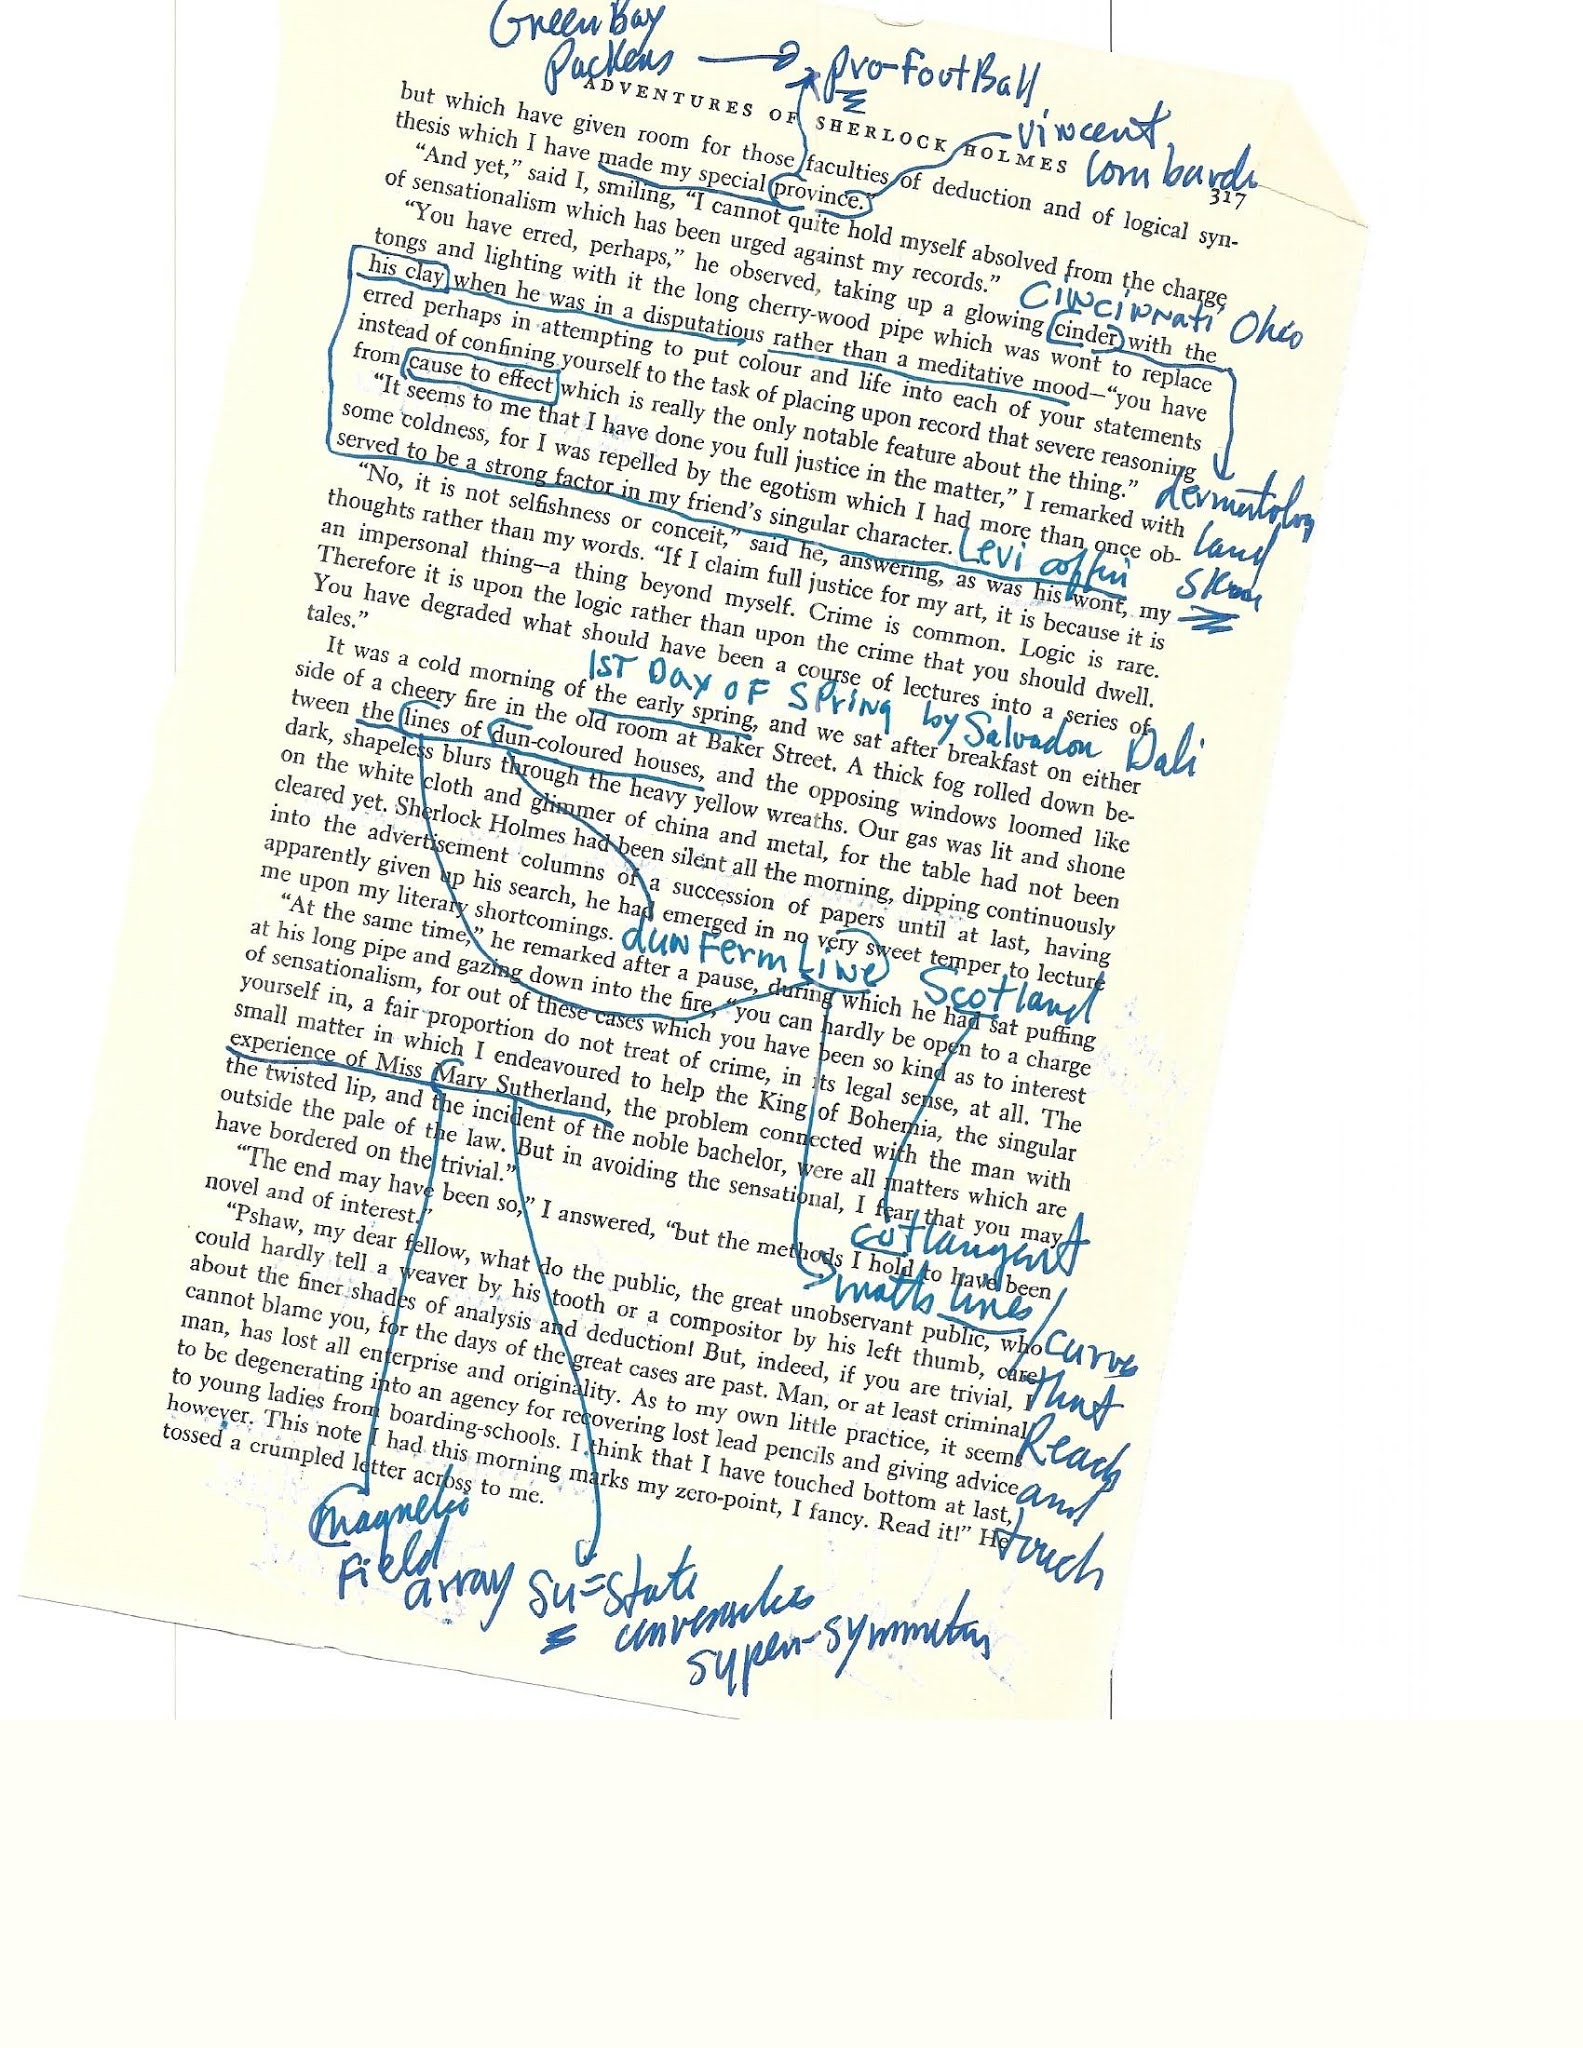 Green Bay
Packers
pro-FootBall
vincent
Lombardi
ADVENTURES OF SHERLOCK HOLMES
317
but which have given room for those faculties of deduction and of logical syn-
thesis which I have made my special province.”
“And yet,” said I, smiling, “I cannot quite hold myself absolved from the charge
of sensationalism which has been urged against my records.”
Cincinnati Ohio
“You have erred, perhaps,” he observed, taking up a glowing cinder with the
tongs and lighting with it the long cherry-wood pipe which was wont to replace
his clay when he was in a disputatious rather than a meditative mood—“you have
erred perhaps in attempting to put colour and life into each of your statements
instead of confining yourself to the task of placing upon record that severe reasoning
from cause to effect which is really the only notable feature about the thing.”
dermatology
“It seems to me that I have done you full justice in the matter,” I remarked with
some coldness, for I was repelled by the egotism which I had more than once ob-
served to be a strong factor in my friend’s singular character.
Levi coffin
“No, it is not selfishness or conceit,” said he, answering, as was his wont, my
thoughts rather than my words. “If I claim full justice for my art, it is because it is
an impersonal thing—a thing beyond myself. Crime is common. Logic is rare.
Therefore it is upon the logic rather than upon the crime that you should dwell.
You have degraded what should have been a course of lectures into a series of
tales.”
1ST DAY OF Spring by Salvador Dali
It was a cold morning of the early spring, and we sat after breakfast on either
side of a cheery fire in the old room at Baker Street. A thick fog rolled down be-
tween the lines of dun-coloured houses, and the opposing windows loomed like
dark, shapeless blurs through the heavy yellow wreaths. Our gas was lit and shone
on the white cloth and glimmer of china and metal, for the table had not been
cleared yet. Sherlock Holmes had been silent all the morning, dipping continuously
into the advertisement columns of a succession of papers until at last, having
apparently given up his search, he had emerged in no very sweet temper to lecture
me upon my literary shortcomings.
dunFermLine Scotland
“At the same time,” he remarked after a pause, during which he had sat puffing
at his long pipe and gazing down into the fire, “you can hardly be open to a charge
of sensationalism, for out of these cases which you have been so kind as to interest
yourself in, a fair proportion do not treat of crime, in its legal sense, at all. The
small matter in which I endeavoured to help the King of Bohemia, the singular
experience of Miss Mary Sutherland, the problem connected with the man with
the twisted lip, and the incident of the noble bachelor, were all matters which are
outside the pale of the law. But in avoiding the sensational, I fear that you may
have bordered on the trivial.”
“The end may have been so,” I answered, “but the methods I hold to have been
novel and of interest.”
cotangent
maths lines/curves
that
Reach
and
touch
“Pshaw, my dear fellow, what do the public, the great unobservant public, who
could hardly tell a weaver by his tooth or a compositor by his left thumb, care
about the finer shades of analysis and deduction! But, indeed, if you are trivial, I
cannot blame you, for the days of the great cases are past. Man, or at least criminal
man, has lost all enterprise and originality. As to my own little practice, it seems
to be degenerating into an agency for recovering lost lead pencils and giving advice
to young ladies from boarding-schools. I think that I have touched bottom at last,
however. This note I had this morning marks my zero-point, I fancy. Read it!” He
tossed a crumpled letter across to me.
magnetic
Field
array
su=state